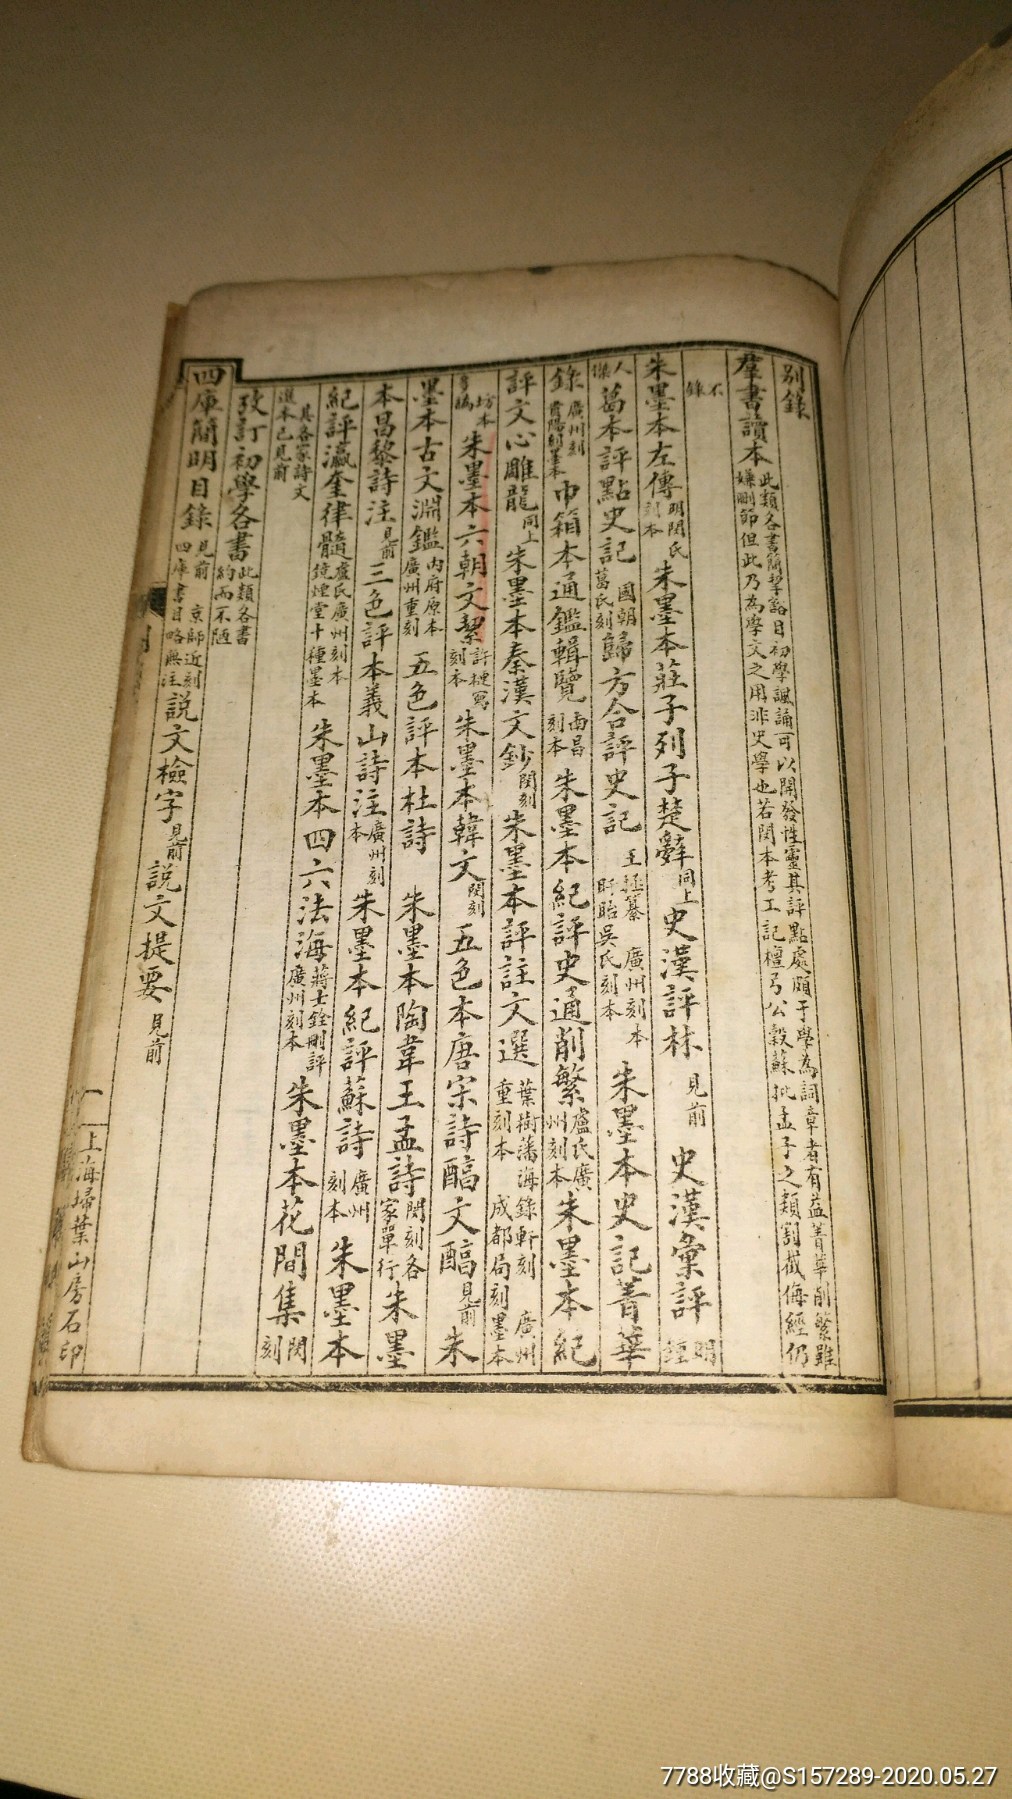 別錄
羣書讀本此類各書簡挈豁目初學諷誦可以開發性靈其評點處頗于學為詞章者有益菁華削繁雖
嫌刪節但此乃為學文之用非史學也若閔本考工記檀弓公穀蘇批孟子之類割截侮經仍
不錄
朱墨本左傳明閔氏刻本 朱墨本莊子列子楚辭同上 史漢評林見前 史漢彙評明鍾
人傑 葛本評點史記葛氏刻 國朝歸方合評史記王拯纂 廣州刻本 盱眙吳氏刻本 朱墨本史記菁華
錄廣州刻 巾箱本通鑑輯覽南昌刻本 朱墨本紀評史通削繁盧氏廣州刻本 朱墨本紀
評文心雕龍同上 朱墨本秦漢文鈔閔刻 朱墨本評註文選葉樹藩海錄軒刻 廣州重刻本 成都局刻墨本
坊本多譌 朱墨本六朝文絜許槤寫刻本 朱墨本韓文閔刻 五色本唐宋詩醕文醕見前 朱
墨本古文淵鑑內府原本 廣州重刻 五色評本杜詩 朱墨本陶韋王孟詩閔刻各家單行 朱墨
本昌黎詩注見前 三色評本義山詩注廣州刻本 朱墨本紀評蘇詩廣州刻本 朱墨本
紀評瀛奎律髓盧氏廣州刻本 鏡煙堂十種墨本 朱墨本四六法海蔣士銓刪評 廣州刻本 朱墨本花間集閔刻
其各家詩文選本已見前
攷訂初學各書此類各書約而不陋
四庫簡明目錄見前 京師近刻四庫書目略無注 說文檢字見前 說文提要見前
一
上海埽葉山房石印
7788收藏@S157289-2020.05.27